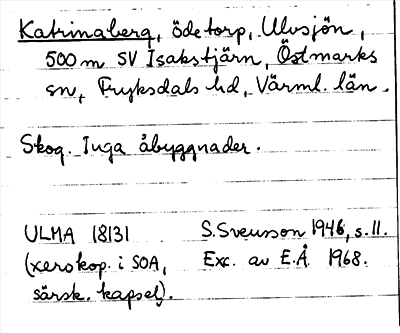 Katrinaberg, ödetorp, Ulvsjön,
500 m SV Isakstjärn, Östmarks
sn, Fryksdals hd, Värml. län.
Skog. Inga åbyggnader.
ULMA 18131 S. Svensson 1946, s. 11.
(xerokop. i SOA, Exc. av E.Å. 1968.
särsk. kapsel).